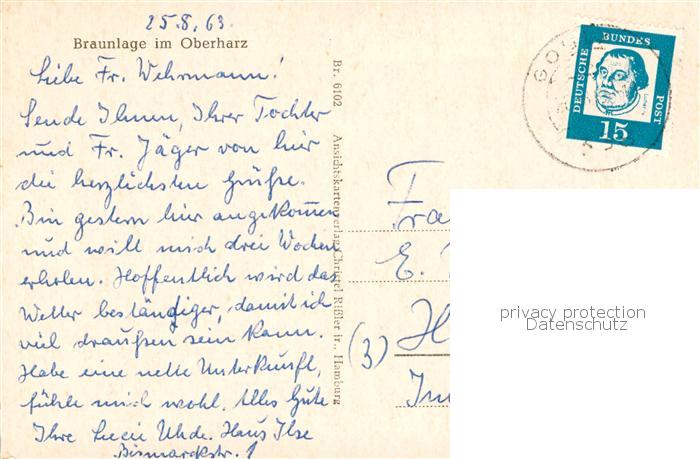 25.8.63.
Braunlage im Oberharz
Liebe Fr. Wehrmann!
Sende Ihnen, Ihrer Tochter
und Fr. Jäger von hier
die herzlichsten Grüße.
Bin gestern hier angekommen
und will mich drei Wochen
erholen. Hoffentlich wird das
Wetter beständiger, damit ich
viel draußen sein kann.
Habe eine nette Unterkunft,
fühle mich wohl. Alles Gute
Ihre Lucie Uhde. Haus Ilse
Bismarckstr. 1
Br. 6102 Ansichtskartenverlag Christel Rißler jr., Hamburg
DEUTSCHE BUNDES POST
15
GOS
Fra
E.
(3) H
Im
privacy protection
Datenschutz